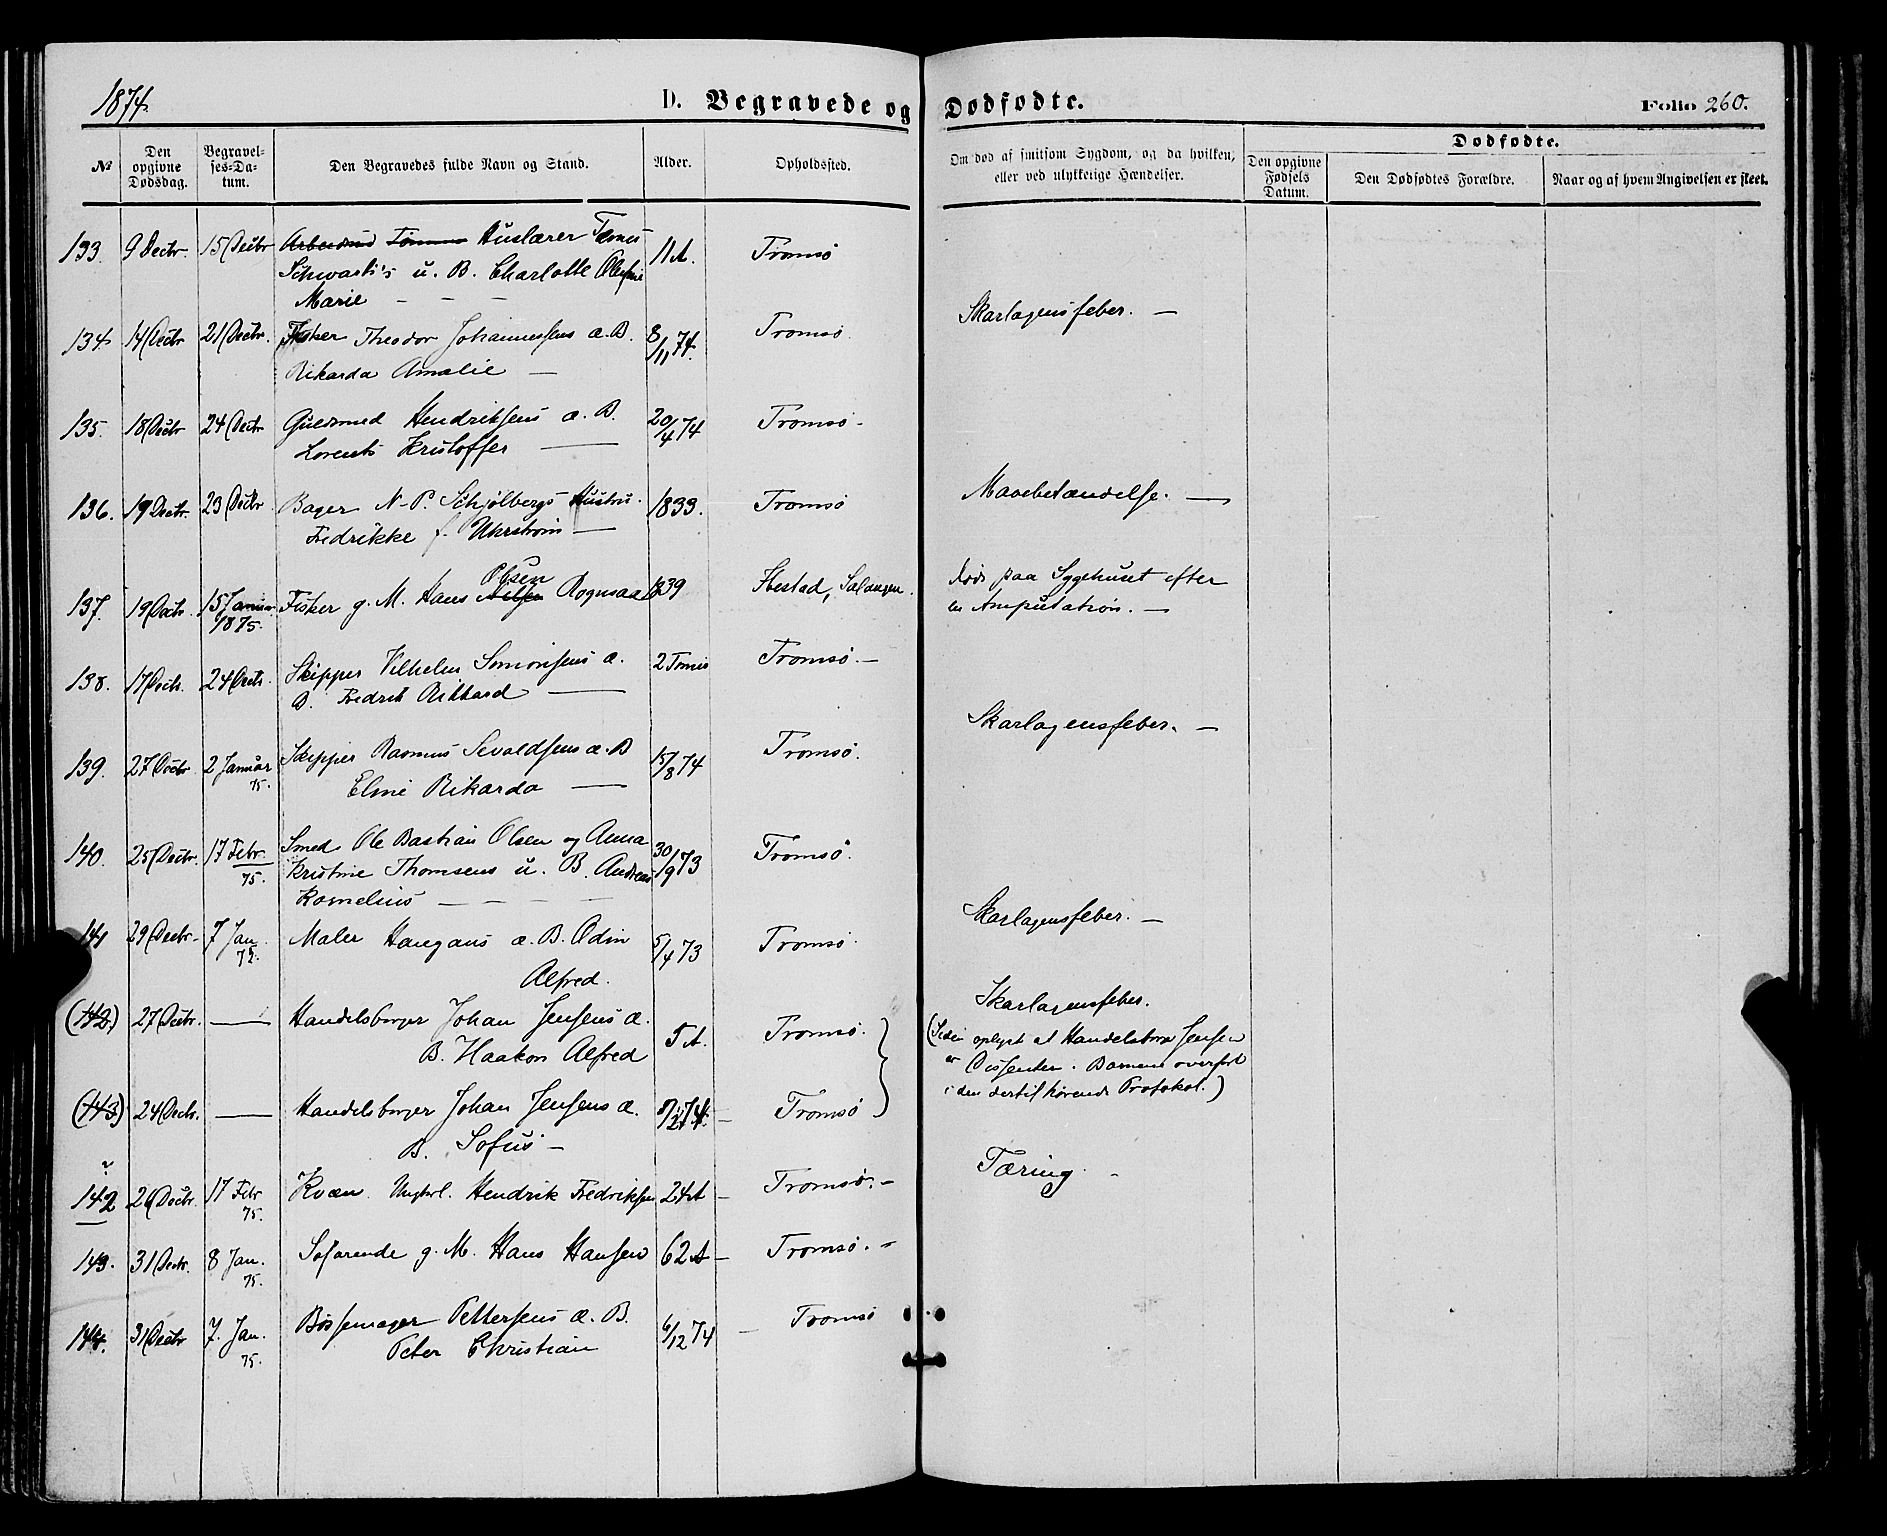 1874.
D. Begravede og Dødfødte.
Folio 260.
№
Den opgivne Dødsdag.
Begravelses-Datum.
Den Begravedes fulde Navn og Stand.
Alder.
Opholdssted.
Om død af smitsom Sygdom, og da hvilken,
eller ved ulykkelige Hændelser.
Dødfødte.
Den opgivne Fødsels Datum.
Den Dødfødtes Forældre.
Naar og af hvem Angivelsen er skeet.
133. 9 Decbr. 15 Decbr Huslærer 11 A. Tromsø
u. B. Charlotte
Marie — — —
Skarlagensfeber. —
134 14 Decbr 21 Decbr. Fisker Theodor Johannessens æ. B. 8/11 74. Tromsø.
Rikarda Amalie —
135. 18 Decbr 24 Decbr Guldsmed Hendriksens æ. B. 20/4 74 Tromsø -
Lorents Kristoffer —
Mavebetændelse. —
136. 19 Decbr. 23 Decbr Bager N. P. Schjølbergs Hustru 1833. Tromsø
Fredrikke f. —
137. 19 Decbr. 15 Januar 1875. Fisker g. M. Hans Nilsen Olsen 1839 Salangen.
død paa Sygehuset efter
en Amputation. —
138. 17 Decbr. 24 Decbr. Skipper Vilhelm Simonsens æ. 2 Tromsø. —
B. Fredrik Rikhard —
Skarlagensfeber. —
139. 27 Decbr 2 Januar 75. Skipper Rasmus Sevaldsens æ. B 15/8 74 Tromsø.
Eline Rikarda —
140. 25 Decbr. 17 Febr. 75. Smed Ole Bastian Olsen og Anna 30/9 73 Tromsø.
Kristine Thomsens u. B. Andreas
Kornelius — — — —
Skarlagensfeber. —
141 29 Decbr. 7 Jan. 75. Maler Haugans æ. B. Odin 5/4 73 Tromsø.
Alfred.
Skarlagensfeber.
(142.) 27 Decbr. — Handelsborger Johan Jensens æ. 5 A. Tromsø.
B. Haakon Alfred
(Siden oplyst at Handelsborger Jensen
er Dissenter. Børnene overført
i den dertil hørende Protokol.)
(143) 24 Decbr. — Handelsborger Johan Jensens æ. Tromsø
B. Sofus —
Tæring. -
142 26 Decbr. 17 Febr 75. Kvæn Ungkrl. Hendrik Fredriksen 24 A — Tromsø. -
143. 31 Decbr. 8 Jan. 75. Søfarende g. M. Hans Hansen 62 A — Tromsø. -
144. 31 Decbr 7. Jan. 75. Bøssemager Pettersens æ. B. 6/12 74 — Tromsø
Peter Christian